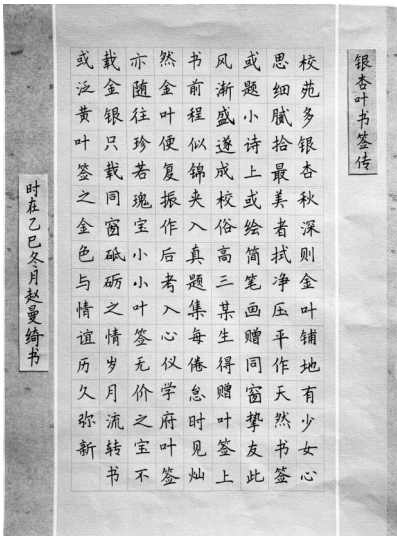 银杏叶书签传
校苑多银杏秋深则金叶铺地有少女心
思细腻拾最美者拭净压平作天然书签
或题小诗上或绘简笔画赠同窗挚友此
风渐盛遂成校俗高三某生得赠叶签上
书前程似锦夹入真题集每倦怠时见灿
然金叶便复振作后考入心仪学府叶签
亦随往珍若瑰宝小小叶签无价之宝不
载金银只载同窗砥砺之情岁月流转书
或泛黄叶签之金色与情谊历久弥新
时在乙巳冬月赵曼绮书